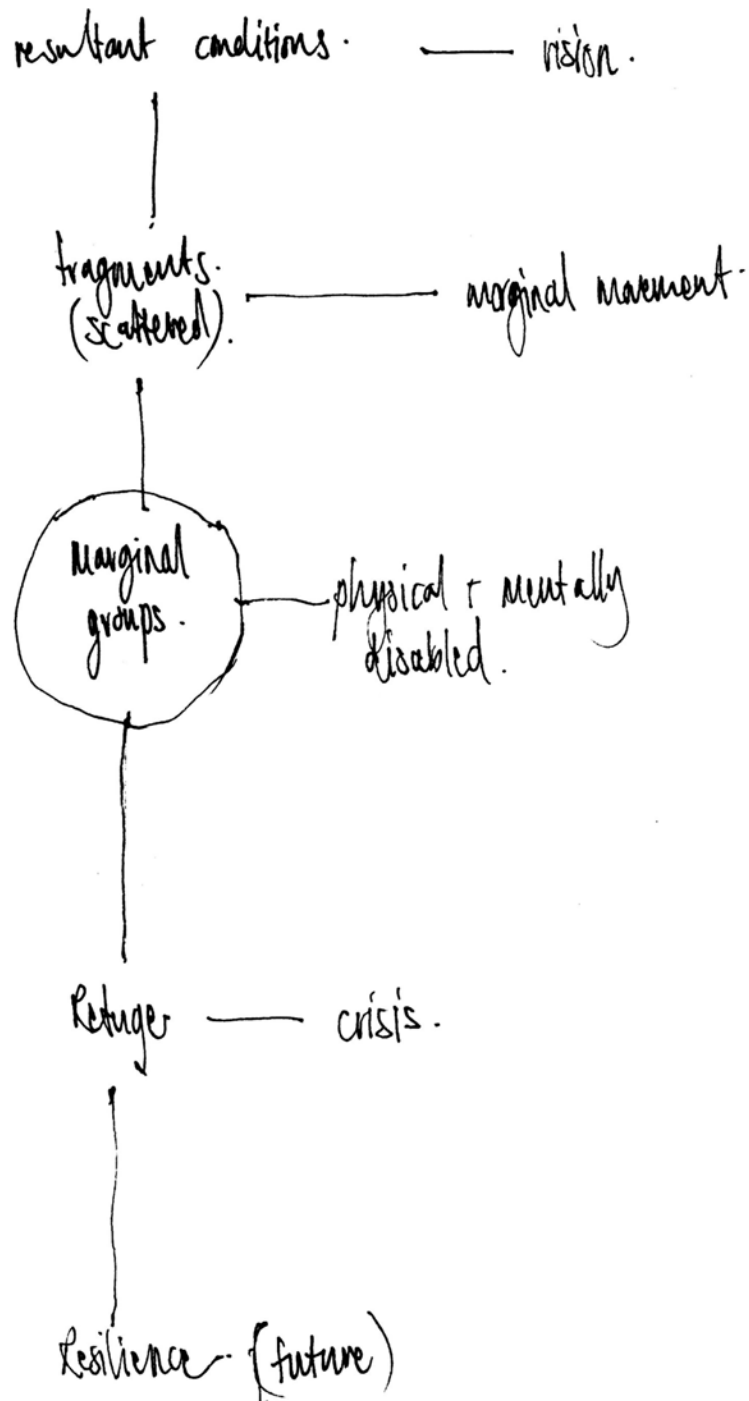 resultant conditions. — vision.
fragments.
(scattered). — marginal movement.
Marginal
groups.
physical + mentally
disabled.
Refuge — crisis.
Resilience - (future)